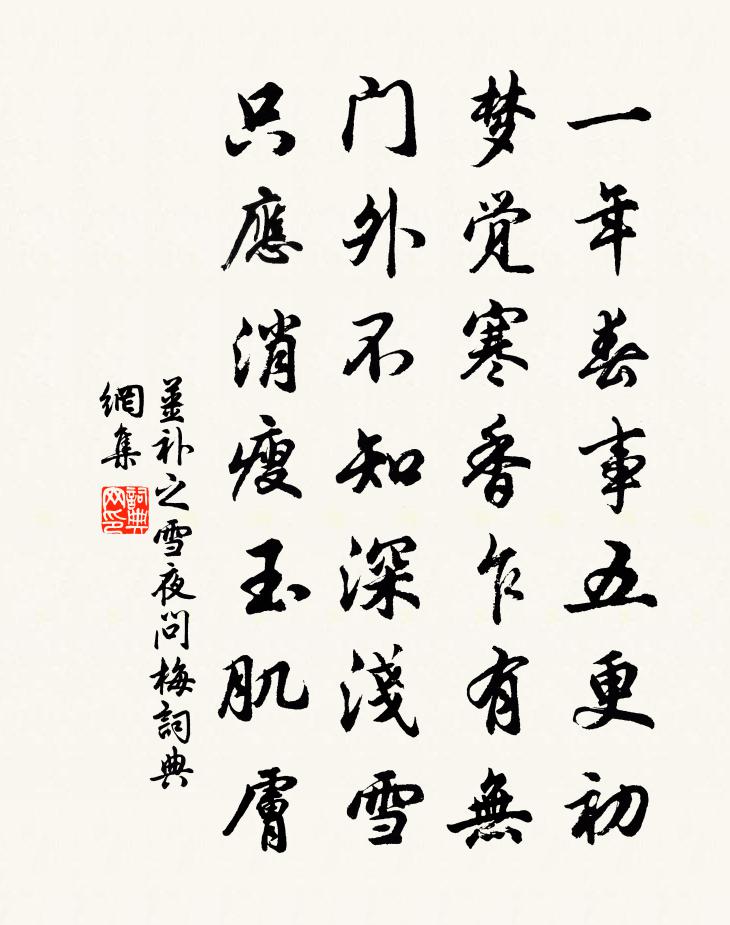 一年春事五更初
梦觉寒香乍有無
门外不知深淺雪
只應消瘦玉肌膚
薑补之雪夜问梅詞典
網集
詞典
网印